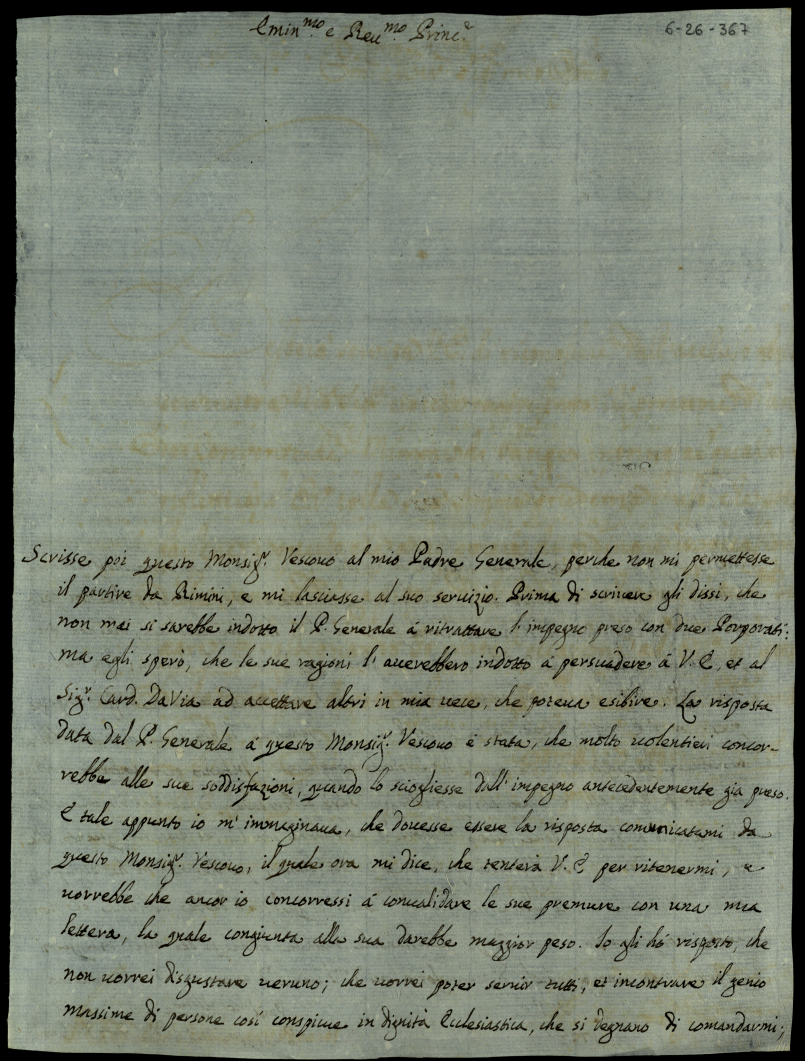 Emin.mo e Reu.mo Princ.e
6-26-367
Scrisse poi questo Monsig.r Vescouo al mio Padre Generale, perche non mi permettesse
il partire da Rimini, e mi lasciasse al suo seruizio. Prima di scriuere gli dissi, che
non mai si sarebbe indotto il P. Generale á ritrattare l'impegno preso con due Porporati:
ma egli sperò, che le sue ragioni l'auerebbero indotto á persuadere á V. E, et al
Sig.r Card. DaVia ad accettare altri in mia uece, che poteua esibire. La risposta
data dal P. Generale á questo Monsig.r Vescouo é stata, che molto uolentieri concor-
rebbe alle sue soddisfazioni, quando lo sciogliesse dall'impegno antecedentemente giá preso.
E tale appunto io m'immaginaua, che douesse essere la risposta comunicatami da
questo Monsig.r Vescouo, il quale ora mi dice, che tenterá V. E per ritenermi, e
uorrebbe che ancor io concorressi á conualidare le sue premure con una mia
lettera, la quale congiunta alla sua darebbe maggior peso. Io gli hó risposto, che
non uorrei disgustare ueruno; che uorrei poter seruir tutti, et incontrare il genio
massime di persone cosí conspicue in dignitá Ecclesiastica, che si degnano di comandarmi;